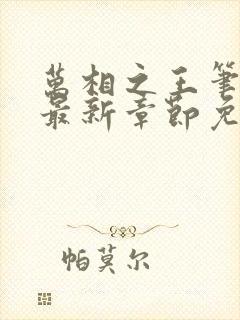 萬相之王筆
最新章節免
帕莫尔